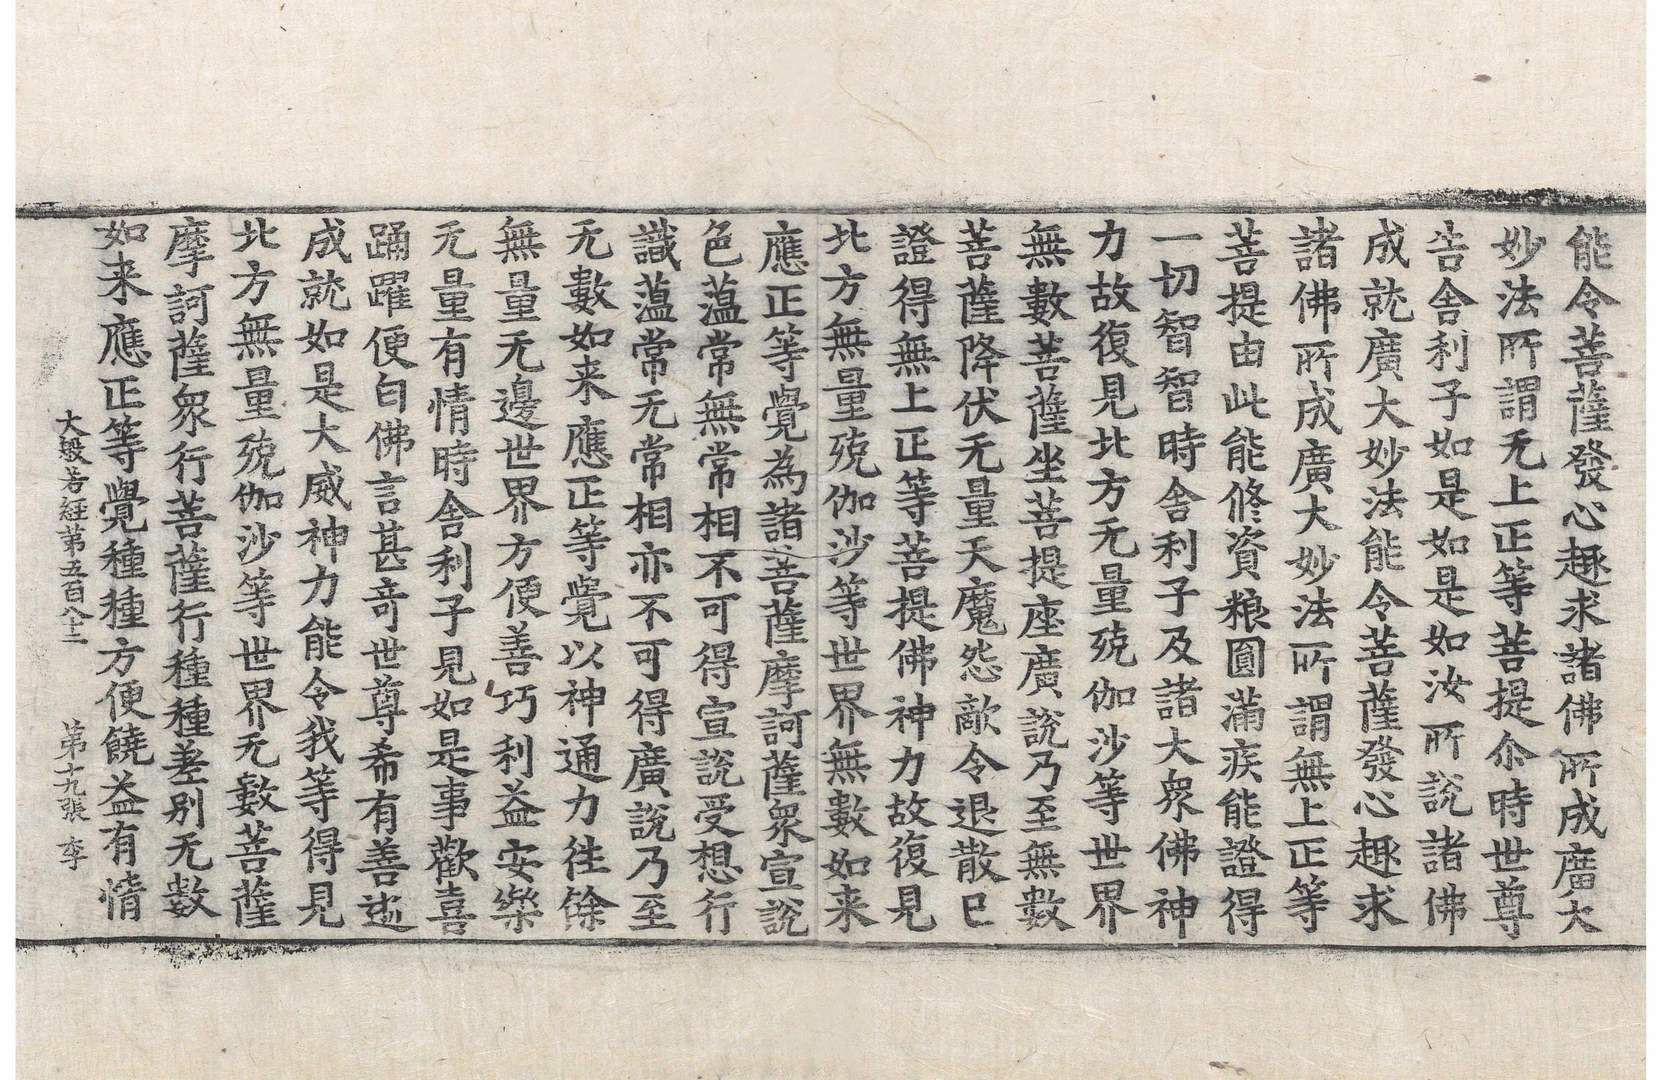 能令菩薩發心趣求諸佛所成廣大
妙法所謂无上正等菩提尒時世尊
告舍利子如是如是如汝所說諸佛
成就廣大妙法能令菩薩發心趣求
諸佛所成廣大妙法所謂無上正等
菩提由此能修資粮圓滿疾能證得
一切智智時舍利子及諸大衆佛神
力故復見北方无量殑伽沙等世界
無數菩薩坐菩提座廣說乃至無數
菩薩降伏无量天魔怨敵令退散已
證得無上正等菩提佛神力故復見
北方無量殑伽沙等世界無數如来
應正等覺為諸菩薩摩訶薩衆宣說
色蕰常無常相不可得宣說受想行
識蕰常无常相亦不可得廣說乃至
无數如来應正等覺以神通力往餘
無量无邊世界方便善巧利益安樂
无量有情時舍利子見如是事歡喜
踊躍便白佛言甚奇世尊希有善逝
成就如是大威神力能令我等得見
北方無量殑伽沙等世界无數菩薩
摩訶薩衆行菩薩行種種差别无數
如来應正等覺種種方便饒益有情
大般若經第五百八十二 第十九張 李